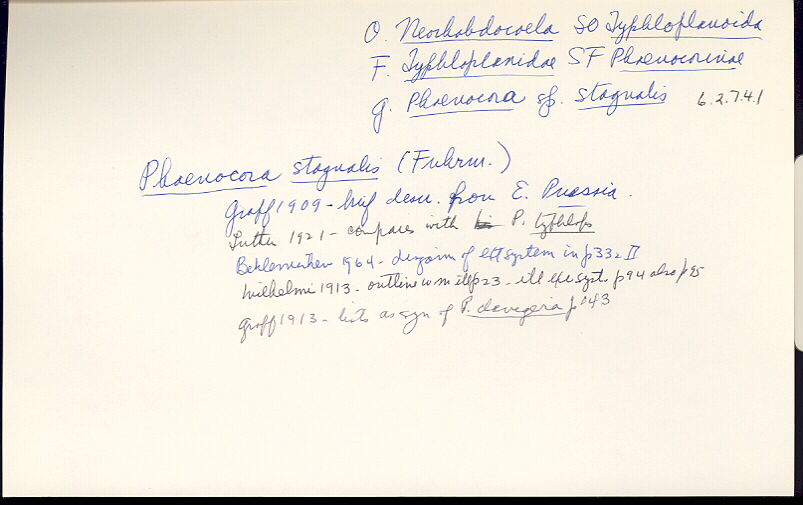 O. Neorhabdocoela SO Typhloplanoida
F. Typhloplanidae SF Phaenocorinae
g. Phaenocora sp. stagnalis 6.2.7.4.1
Phaenocora stagnalis (Fuhrm.)
Graff 1909 - brief descr. from E. Prussia.
Luther 1921 - compares with P. typhlops
Beklemischev 1964 - diagram of ext system in p332 II
Wilhelmi 1913 - outline w m ill p23 - ill exc syst. p94 also p95
Graff 1913 - lists as syn of P. clavigera p143